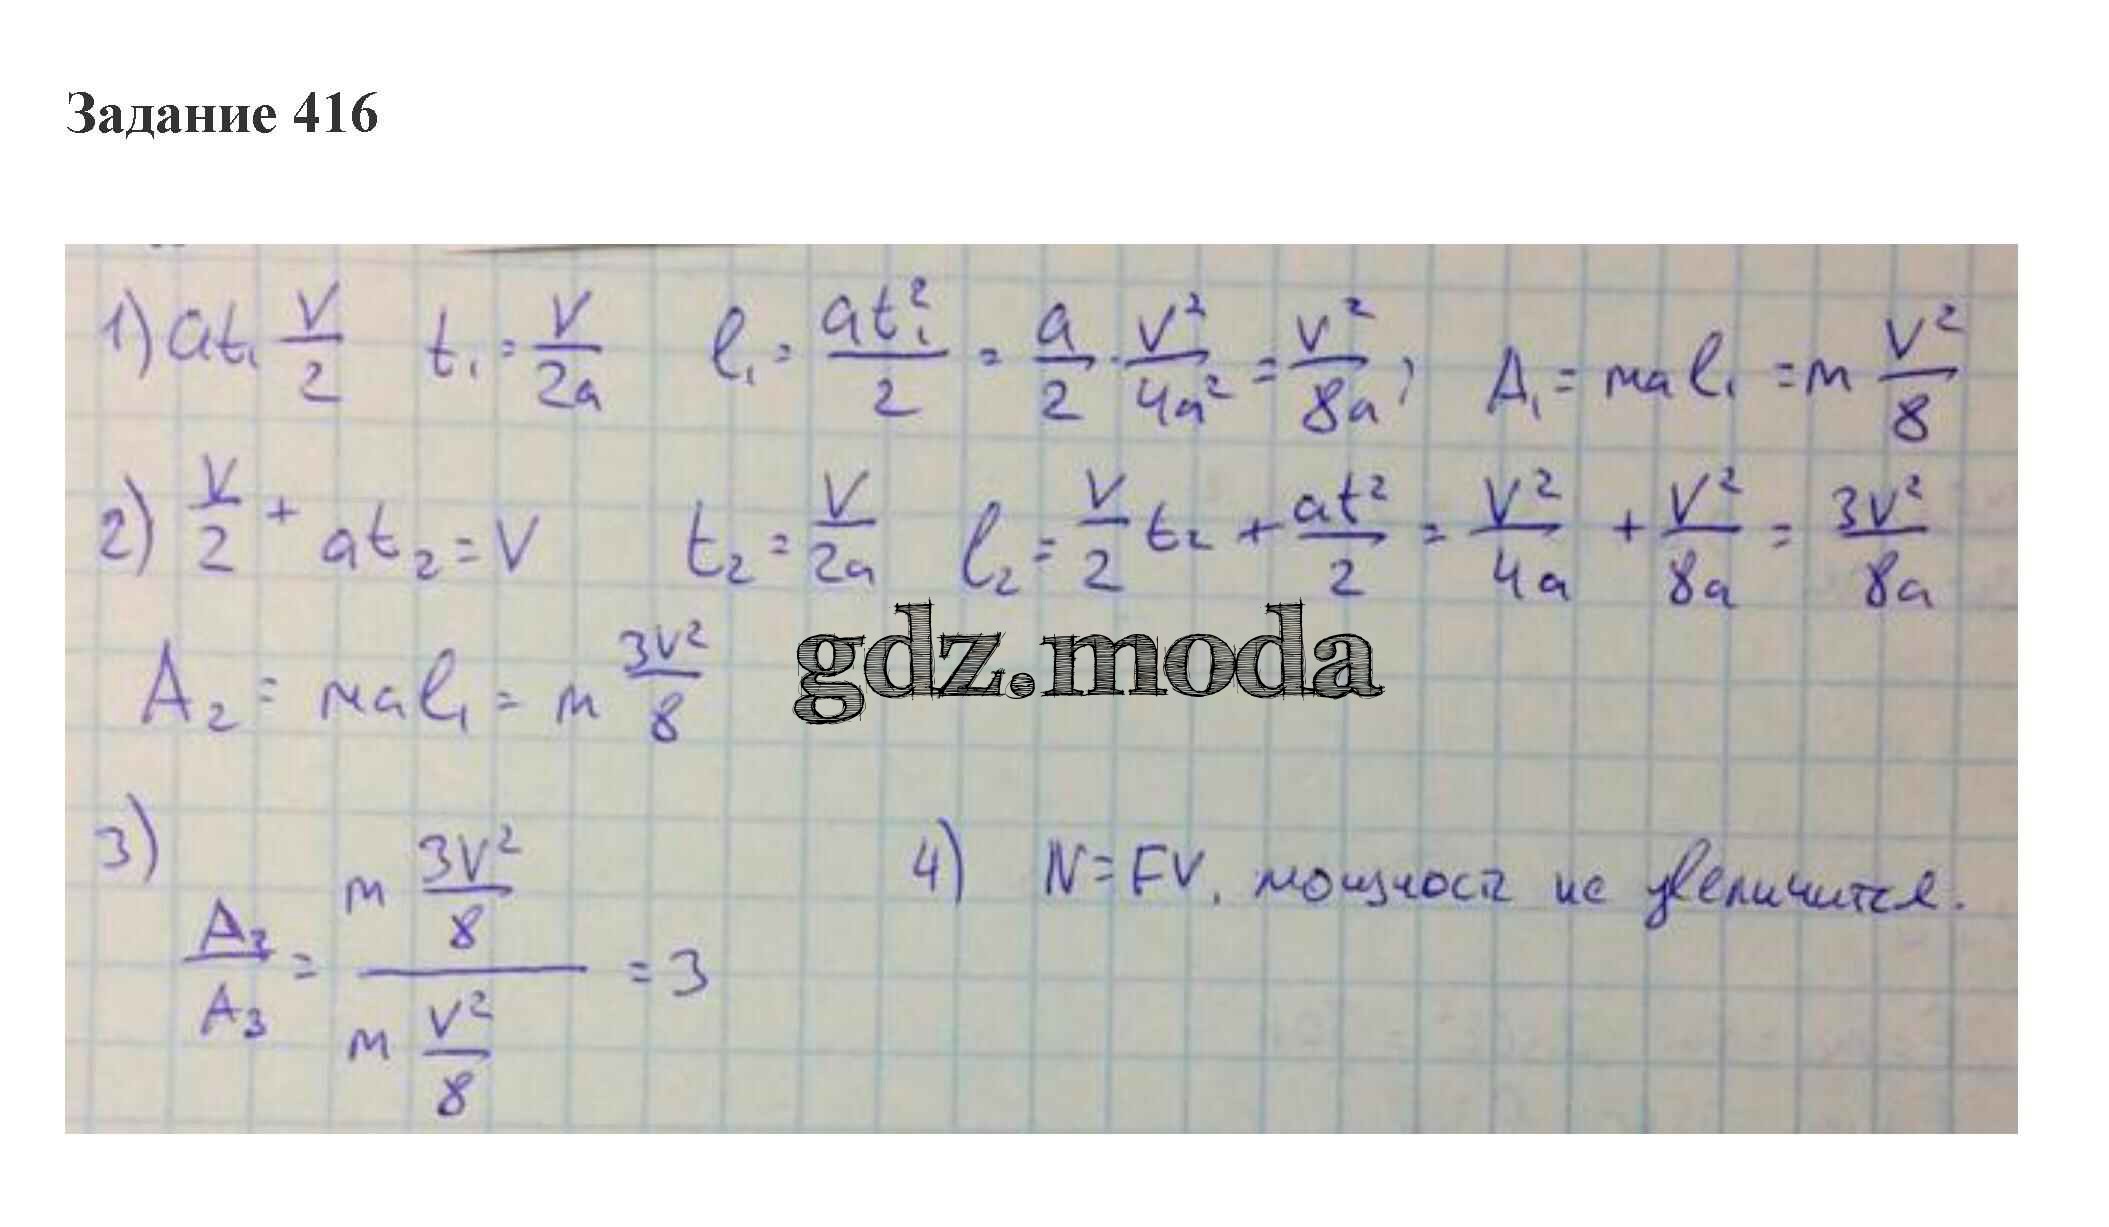 Задание 416
1) at₁ V/2 t₁ = V/2a l₁ = at₁²/2 = a/2 · V²/4a² = V²/8a ; A₁ = mal₁ = m V²/8
2) V/2 + at₂ = V t₂ = V/2a l₂ = V/2 t₂ + at²/2 = V²/4a + V²/8a = 3V²/8a
A₂ = mal₁ = m 3V²/8
gdz.moda
3) A₃/A₃ = (m 3V²/8)/(m V²/8) = 3
4) N = FV, мощность не увеличится.